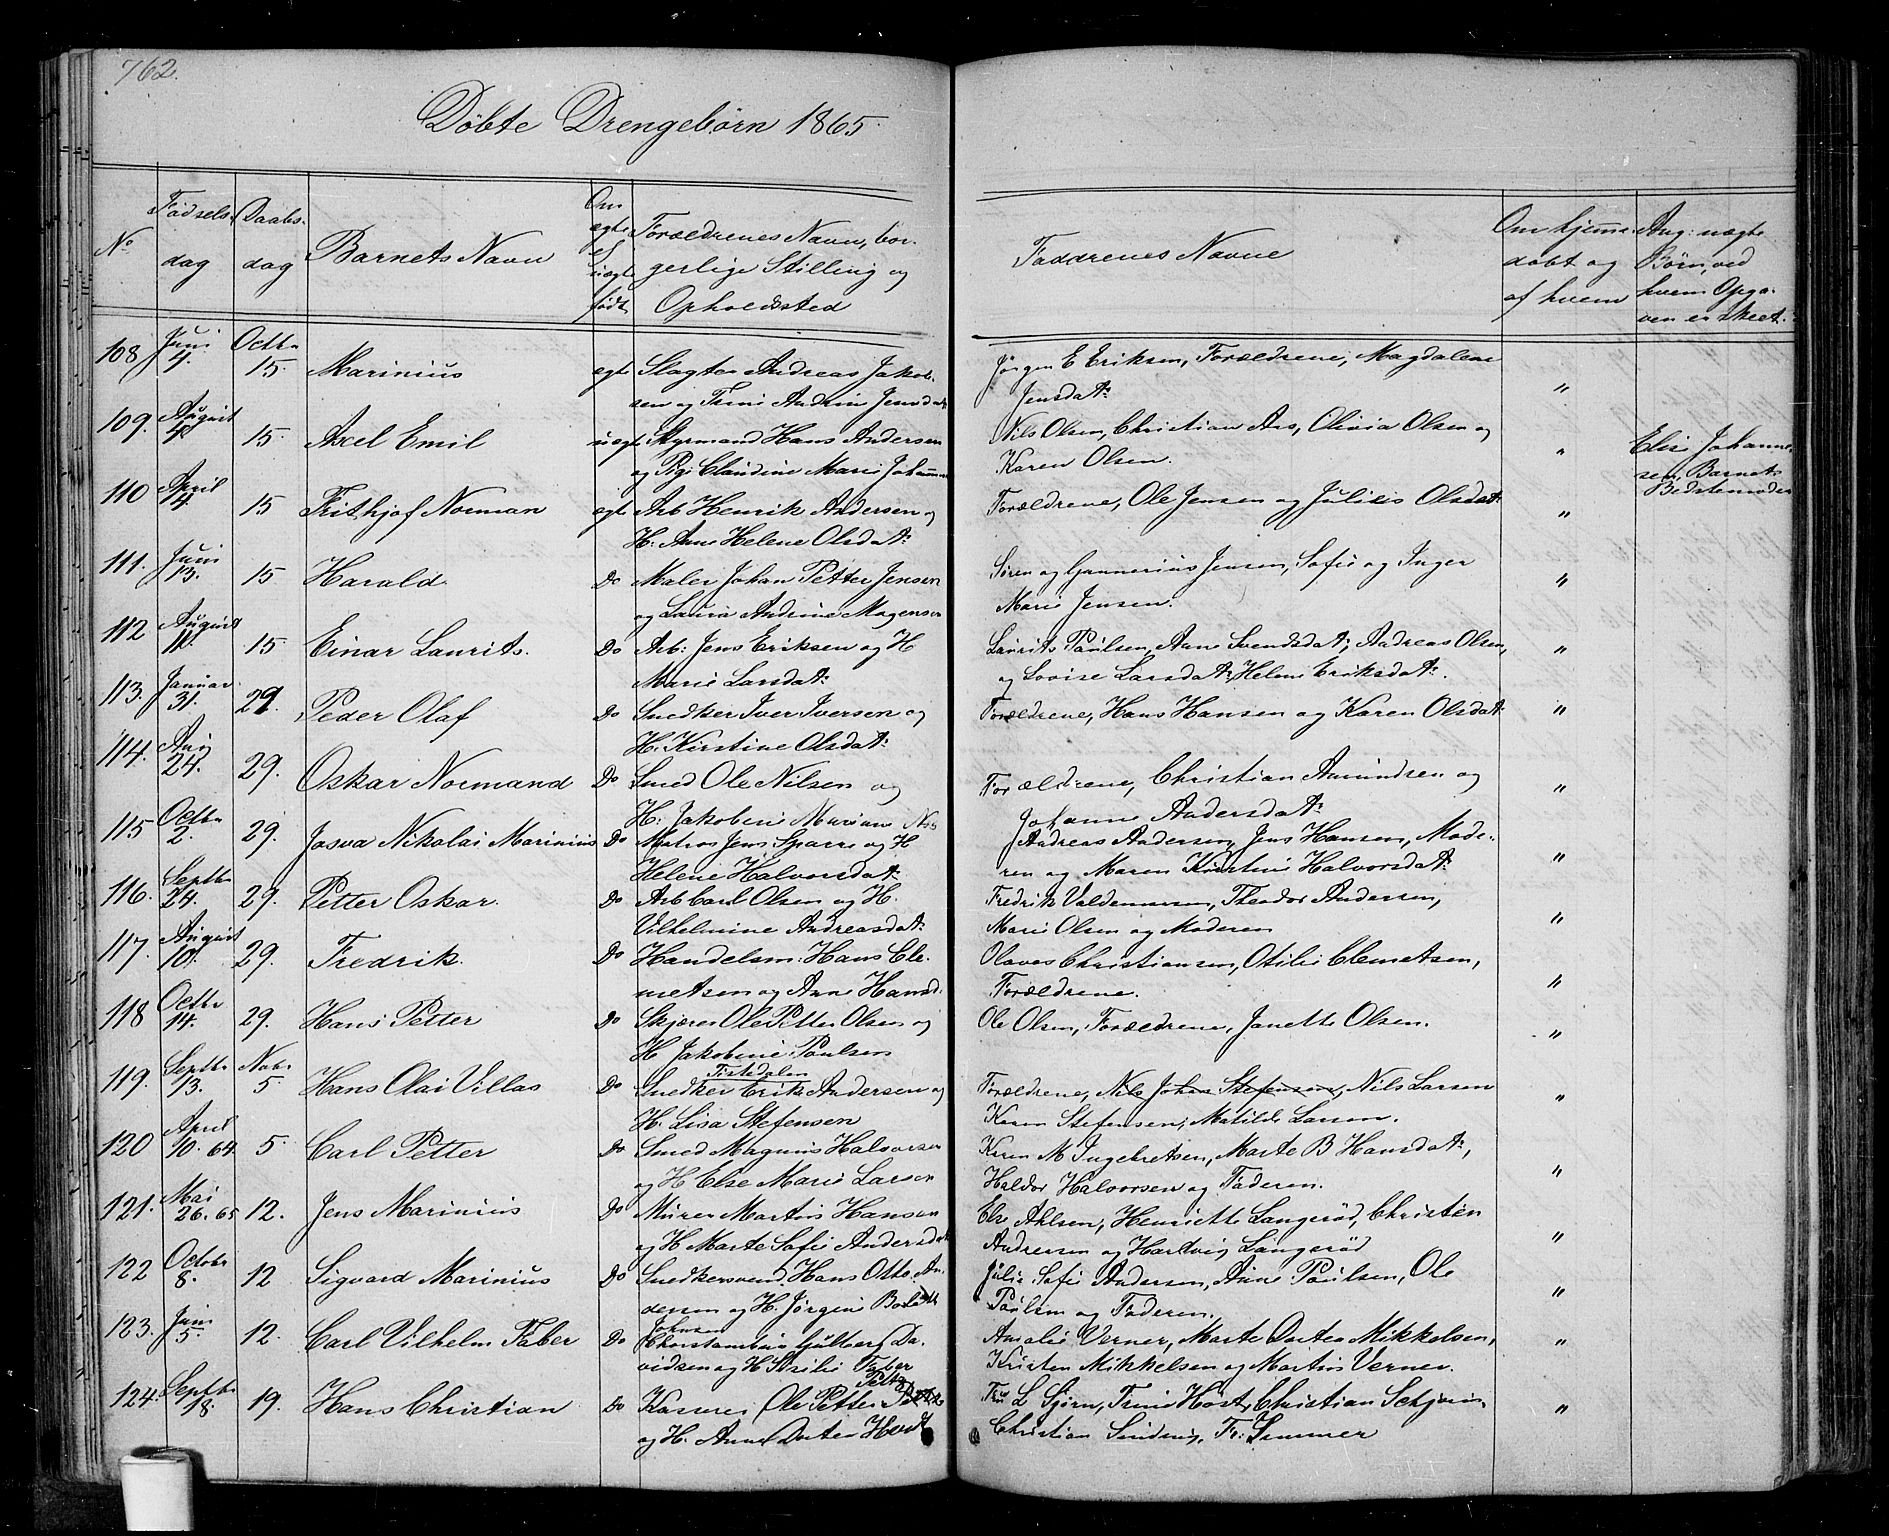 762.
Döbte Drengebørn 1865.
No
Fødsels dag
Daabs dag
Barnets Navn
Om ægte el uægte født
Forældrenes Navn, bor-
gerlige Stilling og
Opholdssted
Faddrenes Navne
Om hjemme
døbt og
af hvem
Ang: uægte
Børn, ved
hvem Opga-
ven er skeet.
108 Juni 4. Octbr 15. Marinius ægte Slagter Andreas Jakob-
sen og Trine Andrine Jensdatr
Jörgen E Eriksen, Forældrene, Magdalene
Jensdatr "
109. August 4. 15. Axel Emil uægte Styrmand Hans Andersen
og Pige Claudine Marie Johannesen
Nils Olsen, Christian Ars, Olivia Olsen og
Karen Olsen. "
Elise Johanne-
sen, Barnets
Bedstemoder
110 April 4. 15 Frithjof Norman ægte Arb Henrik Andersen og
H: Anne Helene Olsdatr
Forældrene, Ole Jensen og Julius Olsdatr "
111. Juni 13. 15 Harald Do Maler Johan Petter Jensen
og Laura Andrine Mogensen
Søren og Gunnerius Jensen, Sofie og Inger
Marie Jensen. "
112 August 11. 15. Einar Laurits. Do Arb: Jens Eriksen og H
Marie Larsdatr
Laurits Paulsen, Anne Svendsdatr, Andreas Olsen,
og Lovise Larsdatr, Helene Eriksdatr. "
113. Januar 31. 29. Peder Olaf Do Snedker Iver Iversen og
H: Kirstine Olsdatr
Forældrene, Hans Hansen og Karen Olsdatr "
114. Aug 24. 29. Oskar Normand Do Smed Ole Nilsen og
H: Jakobine Mariane
Forældrene, Christian Amundsen og
Johanne Andersdatr "
115 Octbr 2. 29. Josva Nikolai Marinius Do Matros Jens Sparre og H
Helene Halvorsdatr
Andreas Andersen, Jens Hansen, Mode-
ren og Maren Kirstine Halvorsdatr "
116. Septbr 24. 29. Petter Oskar. Do Arb Carl Olsen og H.
Vilhelmine Andreasdatr
Fredrik Valdemarsen, Theodor Andersen,
Marie Olsen og Moderen "
117. August 10. 29. Fredrik. Do Handelsm: Hans Cle-
metsen og Anne Hansd.
Olaves Christiansen, Otilie Clemetsen,
Forældrene. "
118 Octbr 14. 29. Hans Petter Do Skjærer Ole Petter Olsen og
H Jakobine Paulsen
Ole Olsen, Forældrene, Janette Olsen. "
119. Septbr 13. Novbr 5 Hans Olai Villas Do Tistedalen
Snedker Erik Andersen og
H. Lisa Stefensen
Forældrene, Nils Johan Stefensen, Nils Larsen
Karen Stefensen, Matilde Larsen. "
120 April 10. 64. 5. Carl Petter Do Smed Magnus Halvorsen
og H Else Marie Larsen
Karen M Ingebretsen, Marte B Hansdatr,
Haldor Halvorsen og Faderen. "
121. Mai 26. 65 12. Jens Marinius Do Murer Martin Hansen
og H Marte Sofie Andersdatr
Else Ahlsen, Henriette Langerød, Christen
Andersen og Hartvig Langerød "
122 Octobr 8. 12 Sigvard Marinius Do Snedkersvend Hans Otto An-
dersen og H. Jörgine
Julie Sofie Andersen, Anne Paulsen, Ole
Paulsen og Faderen. "
123. Juni 5. 12. Carl Vilhelm Faber Do Johnsen
Da-
vidsen og H Faber
Amalie Verner, Marte Dortea Mikkelsen,
Kristen Mikkelsen og Martin Verner. "
124. Septbr 18. 19. Hans Christian Do Kasserer Ole Petter
og H. Anne Dortea
Fru L Gjörn, Trine Høst, Christian
Christian Sinding, Fr: Simmer "